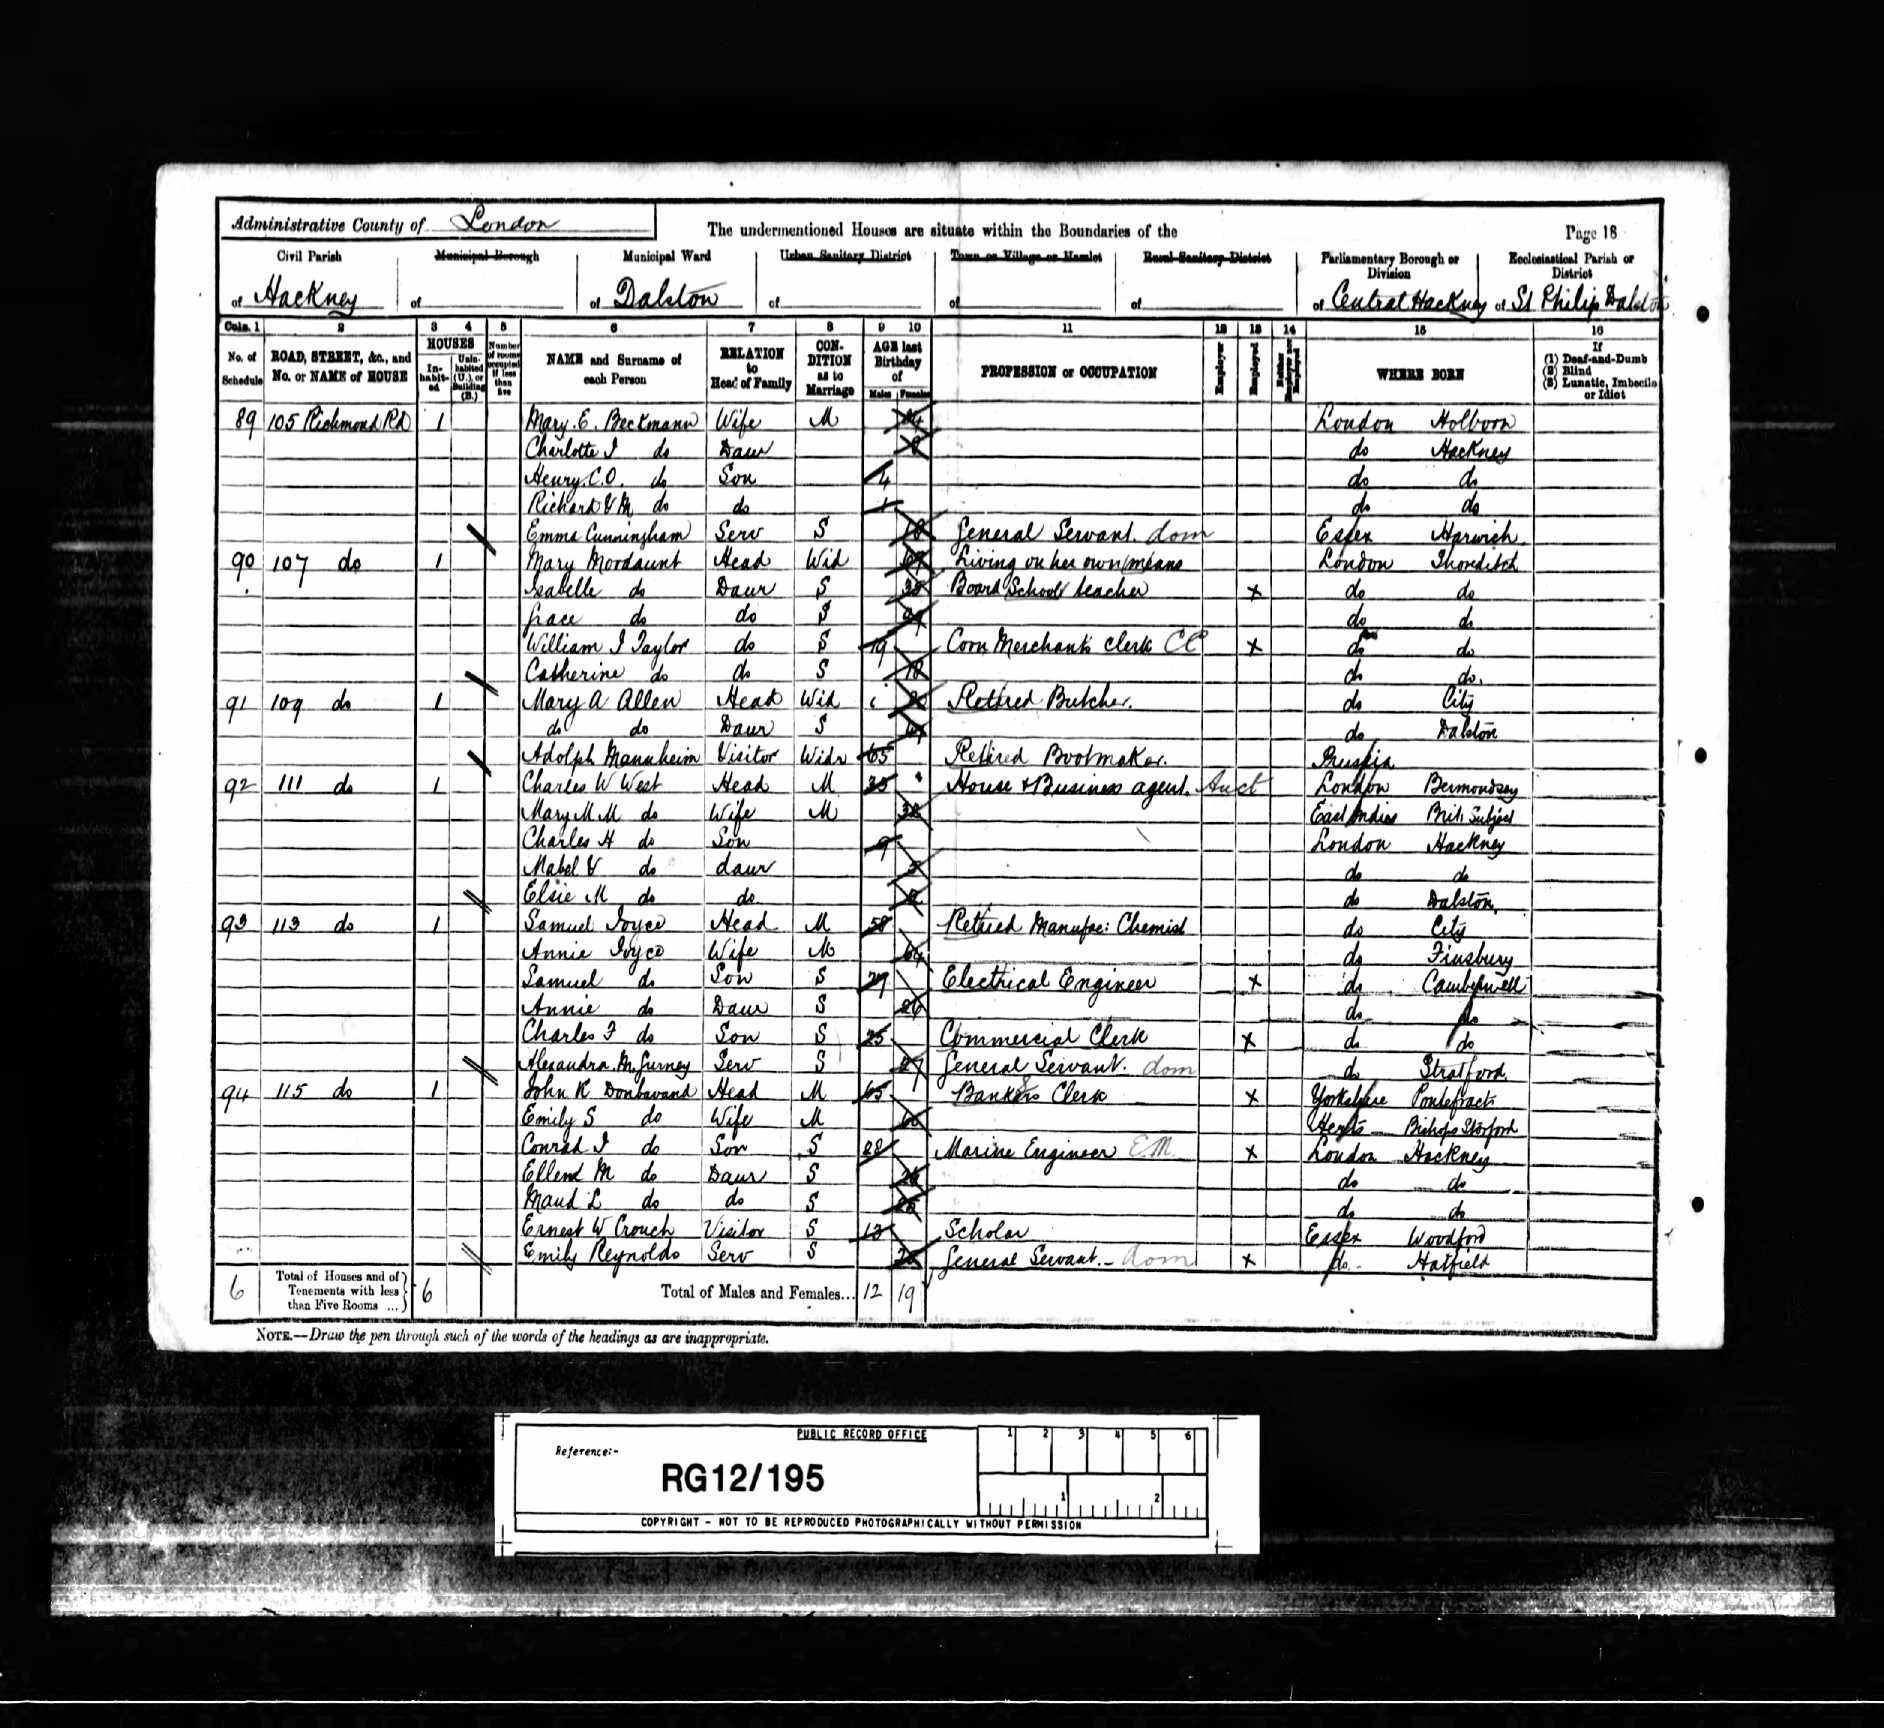 Administrative County of London
The undermentioned Houses are situate within the Boundaries of the
Page 18
Civil Parish Municipal Borough Municipal Ward Urban Sanitary District Town or Village or Hamlet Rural Sanitary District Parliamentary Borough or Division Ecclesiastical Parish or District
of Hackney of of Dalston of of of of Central Hackney of St Philip Dalston
Cols. 1 2 3 4 5 6 7 8 9 10 11 12 13 14 15 16
No. of Schedule ROAD, STREET, &c., and No. or NAME of HOUSE HOUSES Inhabited Uninhabited (U.), or Building (B.) Number of rooms occupied if less than five NAME and Surname of each Person RELATION to Head of Family CONDITION as to Marriage AGE last Birthday of Males Females PROFESSION or OCCUPATION Employer Employed Neither Employer nor Employed WHERE BORN If (1) Deaf-and-Dumb (2) Blind (3) Lunatic, Imbecile or Idiot
89 105 Richmond Rd 1 Mary. E. Beckmann Wife M London Holborn
Charlotte I do Daur do Hackney
Henry. C. O. do Son 4 do do
Richard V M do do 1 do do
Emma Cunningham Serv S 18 General Servant. dom Essex Harwich
90 107 do 1 Mary Mordaunt Head Wid Living on her own means London Shoreditch
Isabelle do Daur S Board School teacher x do do
Grace do do S do do
William I Taylor do S 19 Corn Merchants clerk CC x do do
Catherine do do S 18 do do.
91 109 do 1 Mary A Allen Head Wid Retired Butcher. do City
do do Daur S do Dalston
Adolph Mannheim Visitor Widr 65 Retired Bootmaker. Prussia
92 111 do 1 Charles W West Head M 35 House & Business agent. Auct London Bermondsey
Mary M M do Wife M 38 East Indies Brit. Subject
Charles H do Son 9 London Hackney
Mabel V do daur 5 do do
Elsie M do do. do Dalston.
93 113 do 1 Samuel Joyce Head M 58 Retired Manufac: Chemist do City
Annie Joyce Wife M 64 do Finsbury
Samuel do Son S 27 Electrical Engineer x do Camberwell
Annie do Daur S 26 do do
Charles F do Son S 25 Commercial Clerk x do do
Alexandra. M. Gurney Serv S 27 General Servant. dom do Stratford.
94 115 do 1 John K Donbavand Head M 65 Bankers Clerk x Yorkshire Pontefract
Emily S do Wife M 60 Herts Bishops Storford
Conrad I do Son S 28 Marine Engineer E.M. x London Hackney
Ellend M do Daur S do do
Maud L do do S do do
Ernest W Crouch Visitor S 13 Scholar Essex Woodford
Emily Reynolds Serv S General Servant.- dom x do. Hatfield
6 Total of Houses and of Tenements with less than Five Rooms ... 6 Total of Males and Females... 12 19
NOTE.—Draw the pen through such of the words of the headings as are inappropriate.
PUBLIC RECORD OFFICE
1 2 3 4 5 6
Reference:-
RG12/195
1 2
COPYRIGHT - NOT TO BE REPRODUCED PHOTOGRAPHICALLY WITHOUT PERMISSION